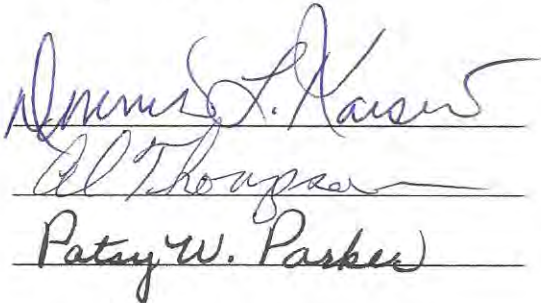 Dennis L. Kaiser
Al Thompson
Patsy W. Parker